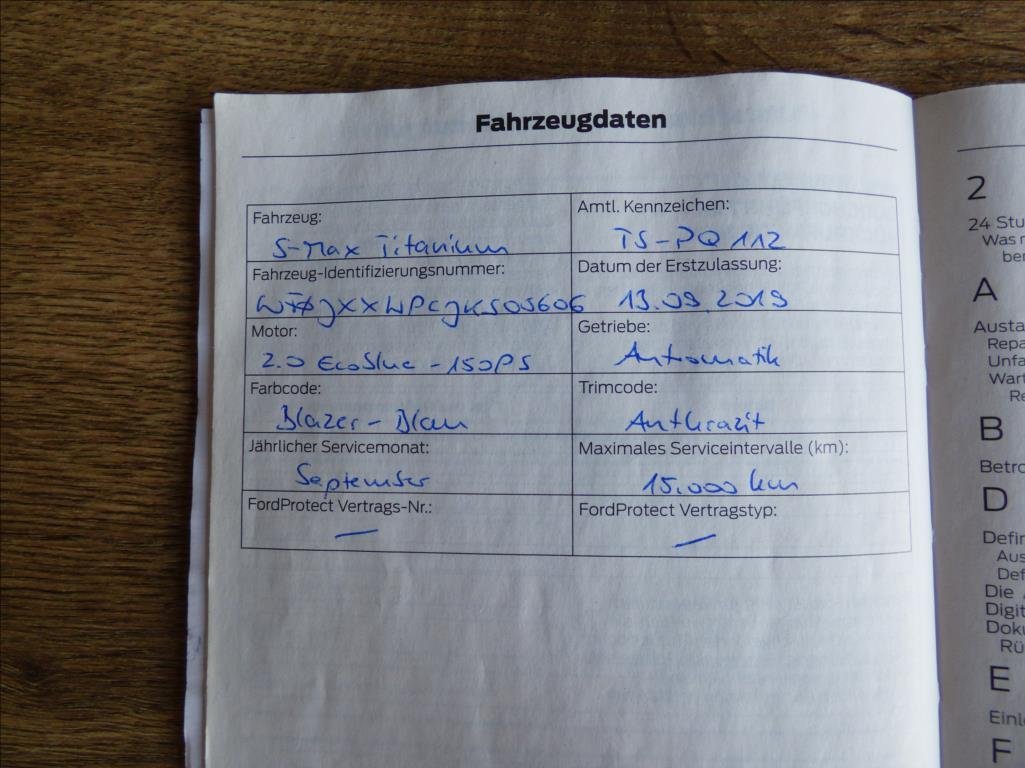 Fahrzeugdaten
Fahrzeug:
S-Max Titanium
Amtl. Kennzeichen:
TS-PQ 112
Fahrzeug-Identifizierungsnummer:
Datum der Erstzulassung:
13.09.2019
Motor:
2.0 EcoBlue - 150PS
Getriebe:
Automatik
Farbcode:
Blazer - Blau
Trimcode:
Anthrazit
Jährlicher Servicemonat:
September
Maximales Serviceintervalle (km):
15.000 km
FordProtect Vertrags-Nr.:
—
FordProtect Vertragstyp:
—
2
24 Stu
Was
ber
A
Austa
Repa
Unfa
Wart
Re
B
Betro
D
Defin
Aus
Def
Die
Digit
Doku
Rü
E
Einle
F